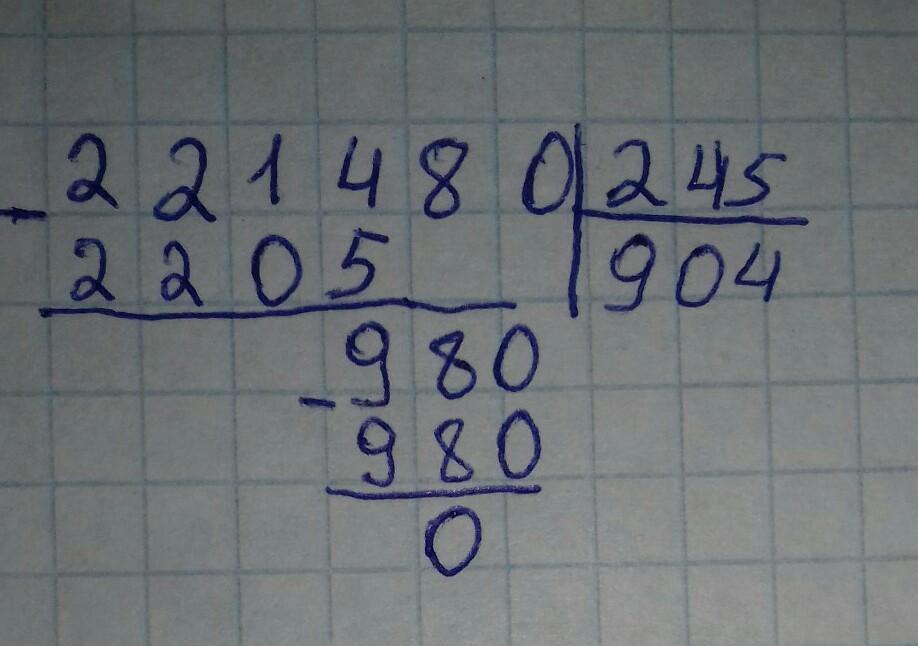 - 221480 | 245
2205 | 904
- 980
980
0